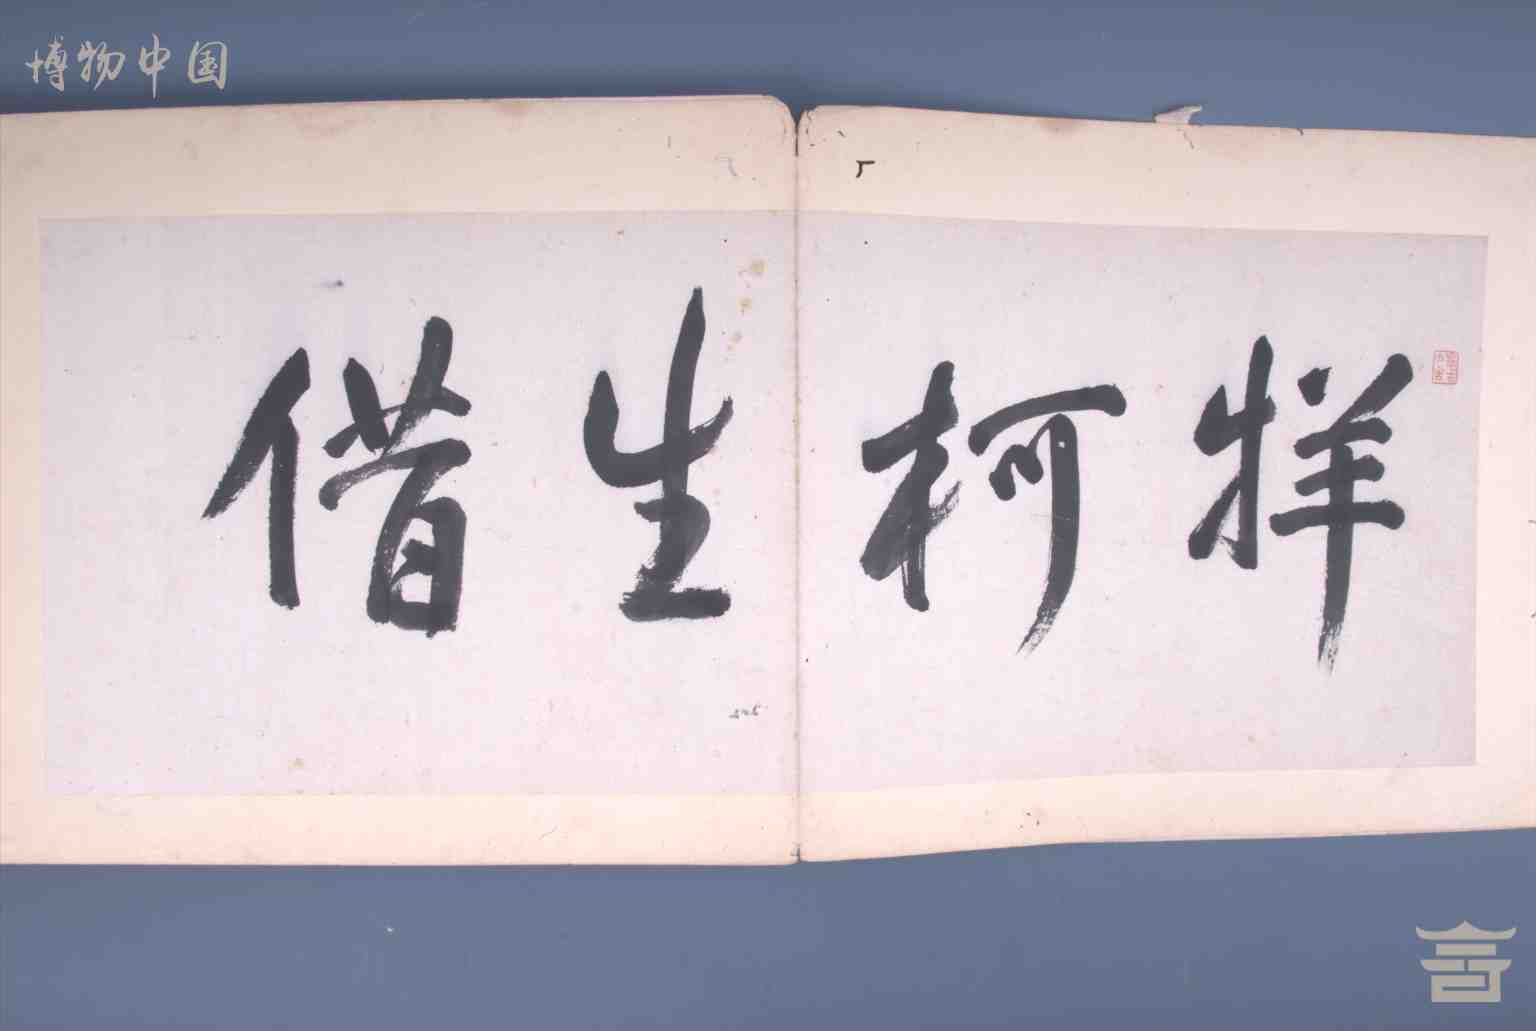 博物中国
牂柯生借